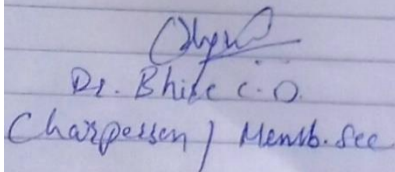 Dr. Bhise C. D.
Chairpersson / Memb. Sec